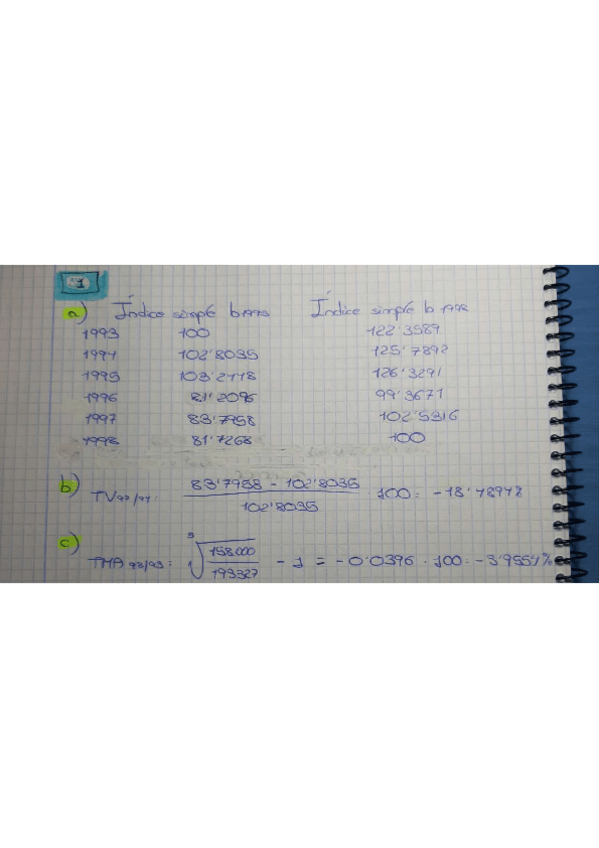 1
a) Índice simple b1993 Índice simple b 1998
1993 100 122'3589
1994 102'8035 125'7892
1995 103'2448 126'3291
1996 81'2096 99'3671
1997 83'7958 102'5316
1998 81'7268 100
b) TV97/94: 83'7958 - 102'8035 / 102'8035 · 100: -18'48948
c) TMA 98/93: 5√158.000/193327 - 1 = -0'0396 · 100: -3'9554%